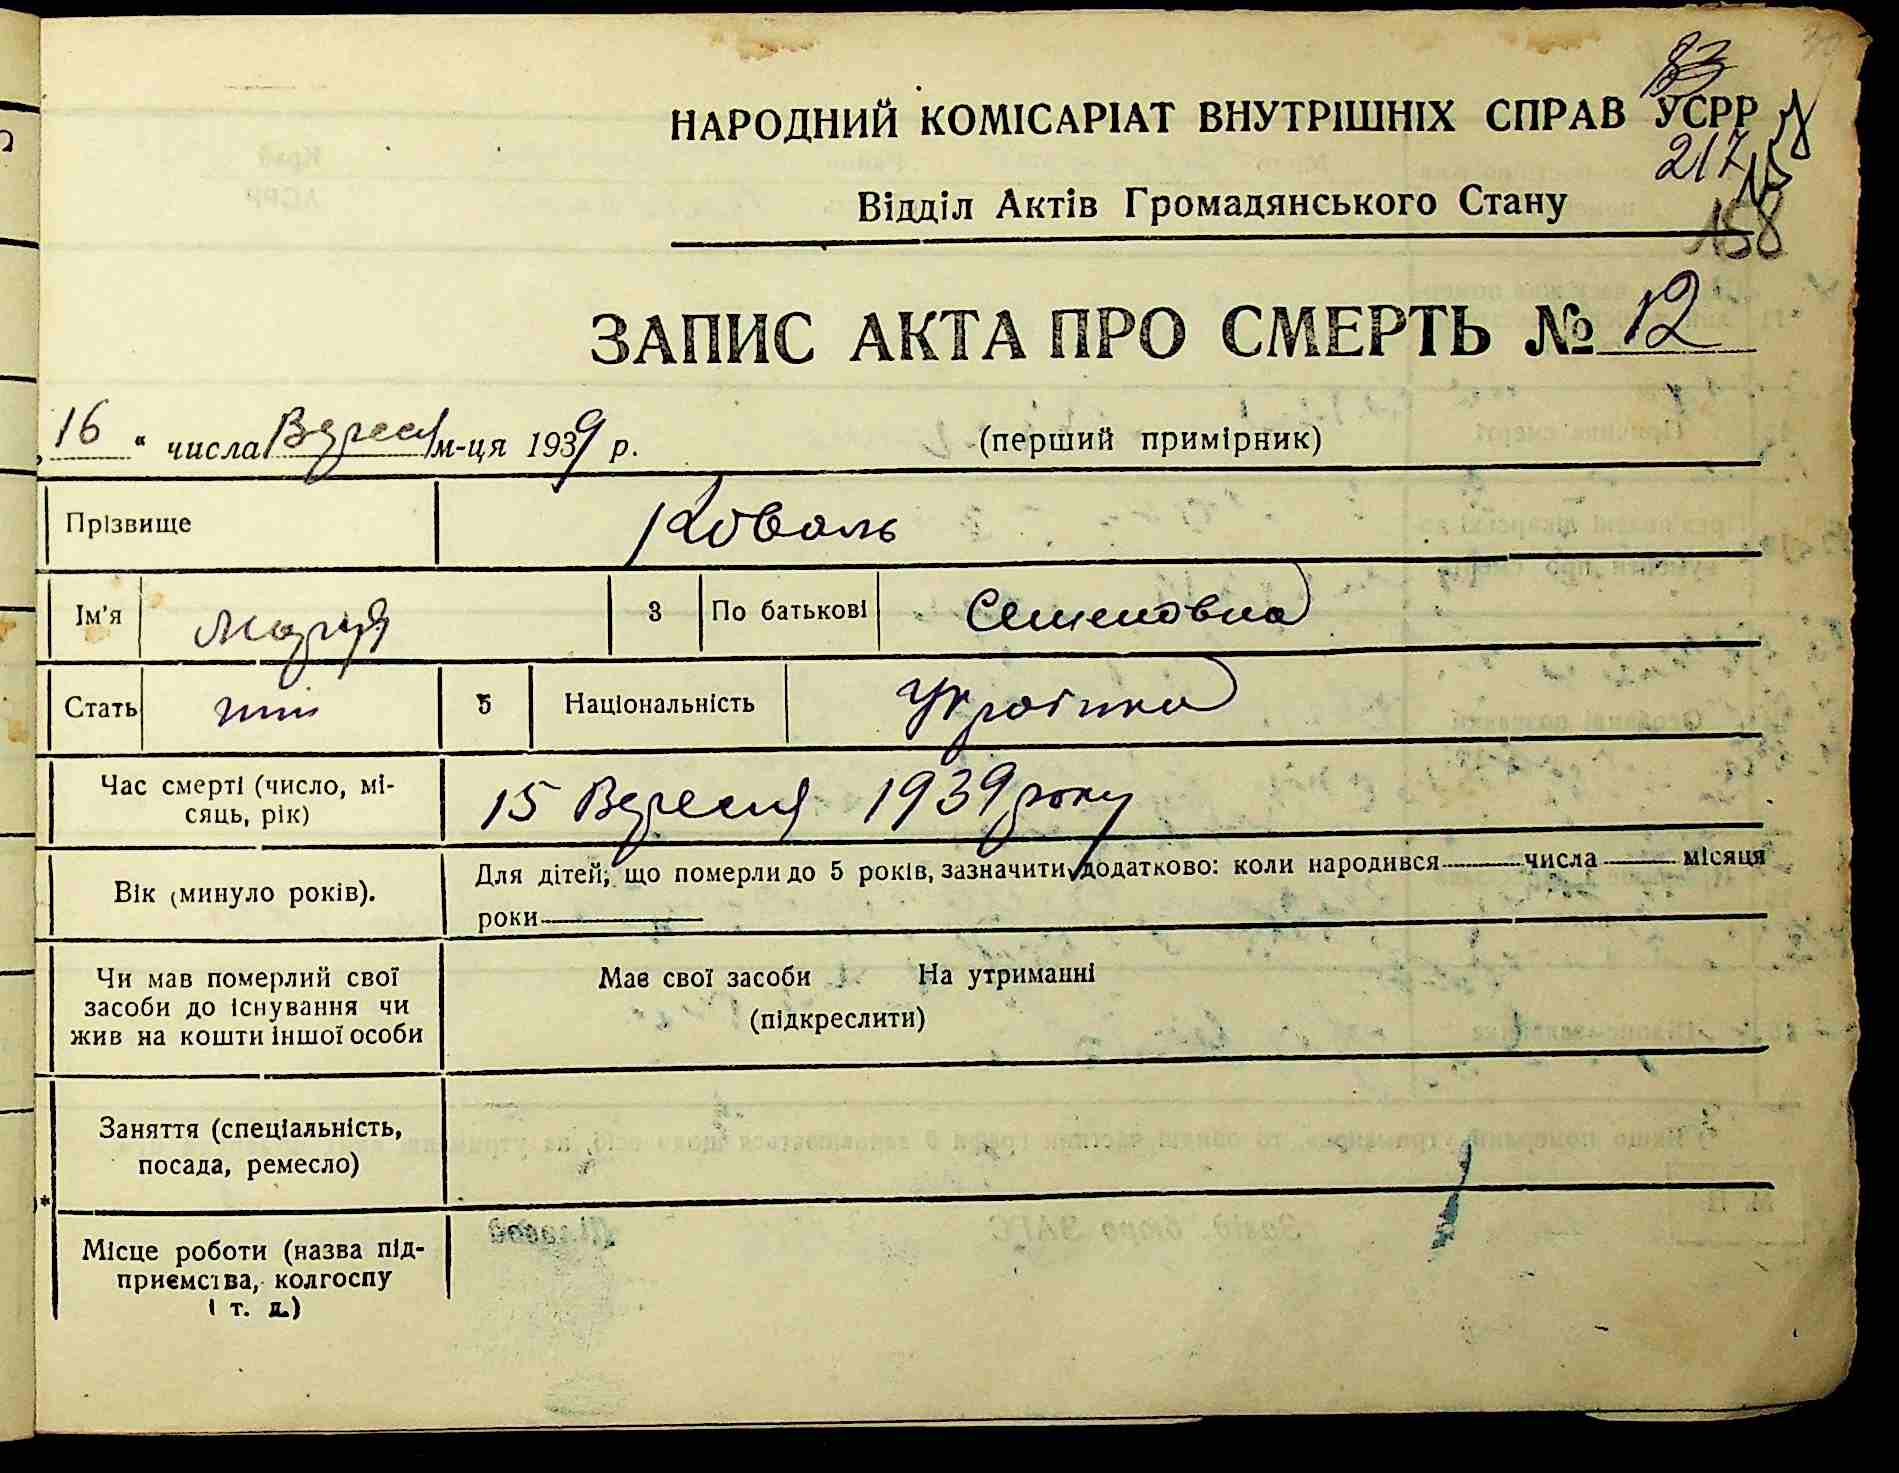 83
НАРОДНИЙ КОМІСАРІАТ ВНУТРІШНІХ СПРАВ УСРР
217
Відділ Актів Громадянського Стану
158
ЗАПИС АКТА ПРО СМЕРТЬ № 12
„16“ числа Вересня м-ця 1939 р. (перший примірник)
Прізвище Коваль
Ім'я Марія 3 По батькові Семеновна
Стать жін 5 Національність Українка
Час смерті (число, мі-
сяць, рік) 15 Вересня 1939 року
Вік (минуло років).
Для дітей, що померли до 5 років, зазначити додатково: коли народився числа місяця
роки
Чи мав померлий свої
засоби до існування чи
жив на кошти іншої особи
Має свої засоби На утриманні
(підкреслити)
Заняття (спеціальність,
посада, ремесло)
*
Місце роботи (назва під-
приємства, колгоспу
і т. д.)